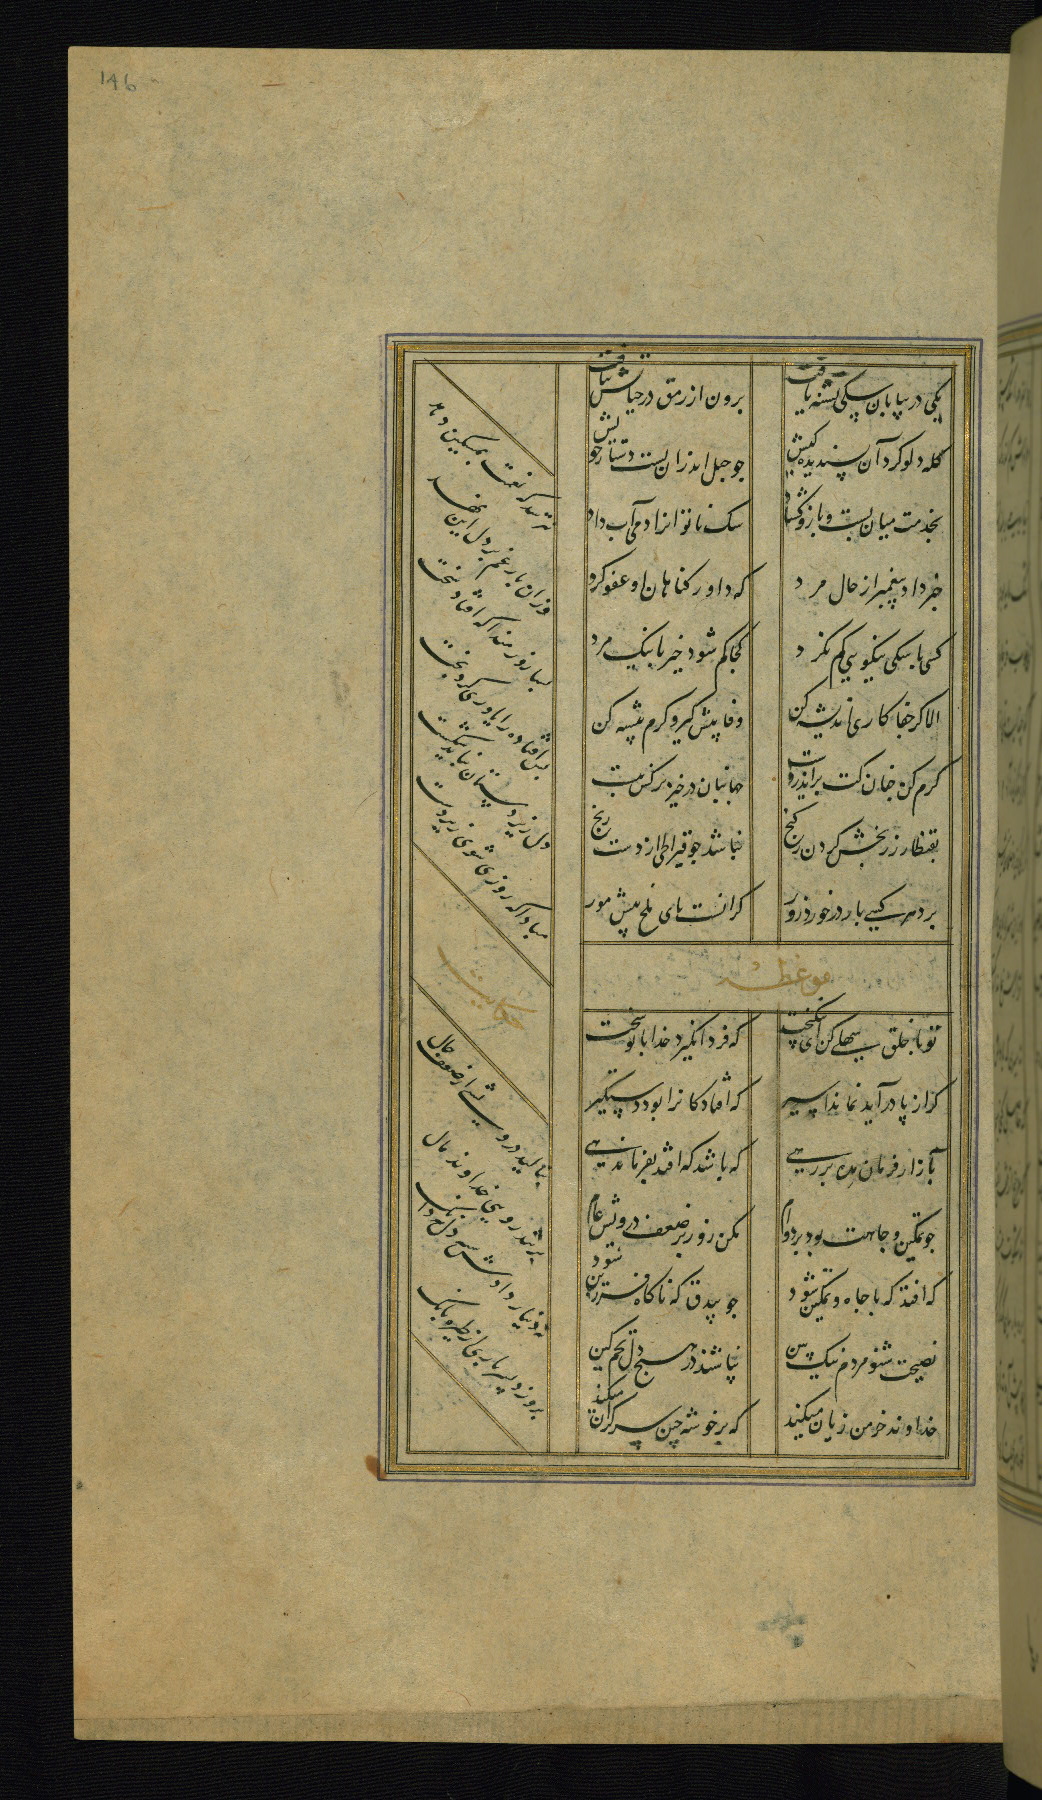 146
یکی در بیابان سگی تشنه یافت
برون از رمق در حیاتش نیافت
کله دلو کرد آن پسندیده کیش
چو حبل اندران بست دستار خویش
بخدمت میان بست و بازو گشاد
سگ ناتوانرا دمی آب داد
خبر داد پیغمبر از حال مرد
که داور گناهان او عفو کرد
کسی با سگی نیکویی کم نکرد
کجا کم شود خیر با نیک مرد
الا گر جفا کاری اندیشه کن
وفا پیش گیر و کرم پیشه کن
کرم کن چنان کت برآید ز دست
جهانبان در خیر بر کس نبست
بقنطار زر بخش کردن ز گنج
نباشد چو قیراطی از دست رنج
برد هر کسی بار در خورد زور
گرانست پای ملخ پیش مور
موعظه
تو با خلق سهلی کن ای نیکبخت
که فردا نگیرد خدا با تو سخت
گر از پا درآید نماند اسیر
که افتادگانرا بود دستگیر
بآزار فرمان مده بر رهی
که باشد که افتد بفرماندهی
چو تمکین و جاهت بود بر دوام
مکن زور بر ضعف درویش عام
که افتد که با جاه و تمکین شود
چو بیدق که ناگاه فرزین شود
نصیحت شنو مردم نیک بین
نپاشند در هیچ دل تخم کین
خداوند خرمن زیان میکند
که بر خوشه چین سر گران میکند
نترسد که نعمت بمسکین دهد
وزان بار غم بر دل این نهد
بسا زورمندا که افتاد سخت
بس افتاده را یاوری کرد بخت
دل زیر دستان نباید شکست
مبادا که روزی شوی زیردست
حکایت
بنالید درویشی از ضعف حال
بر تند رویی خداوند مال
نه دینار دادش سیه دل نه دانگ
برو زد بسر باری از طیره بانگ